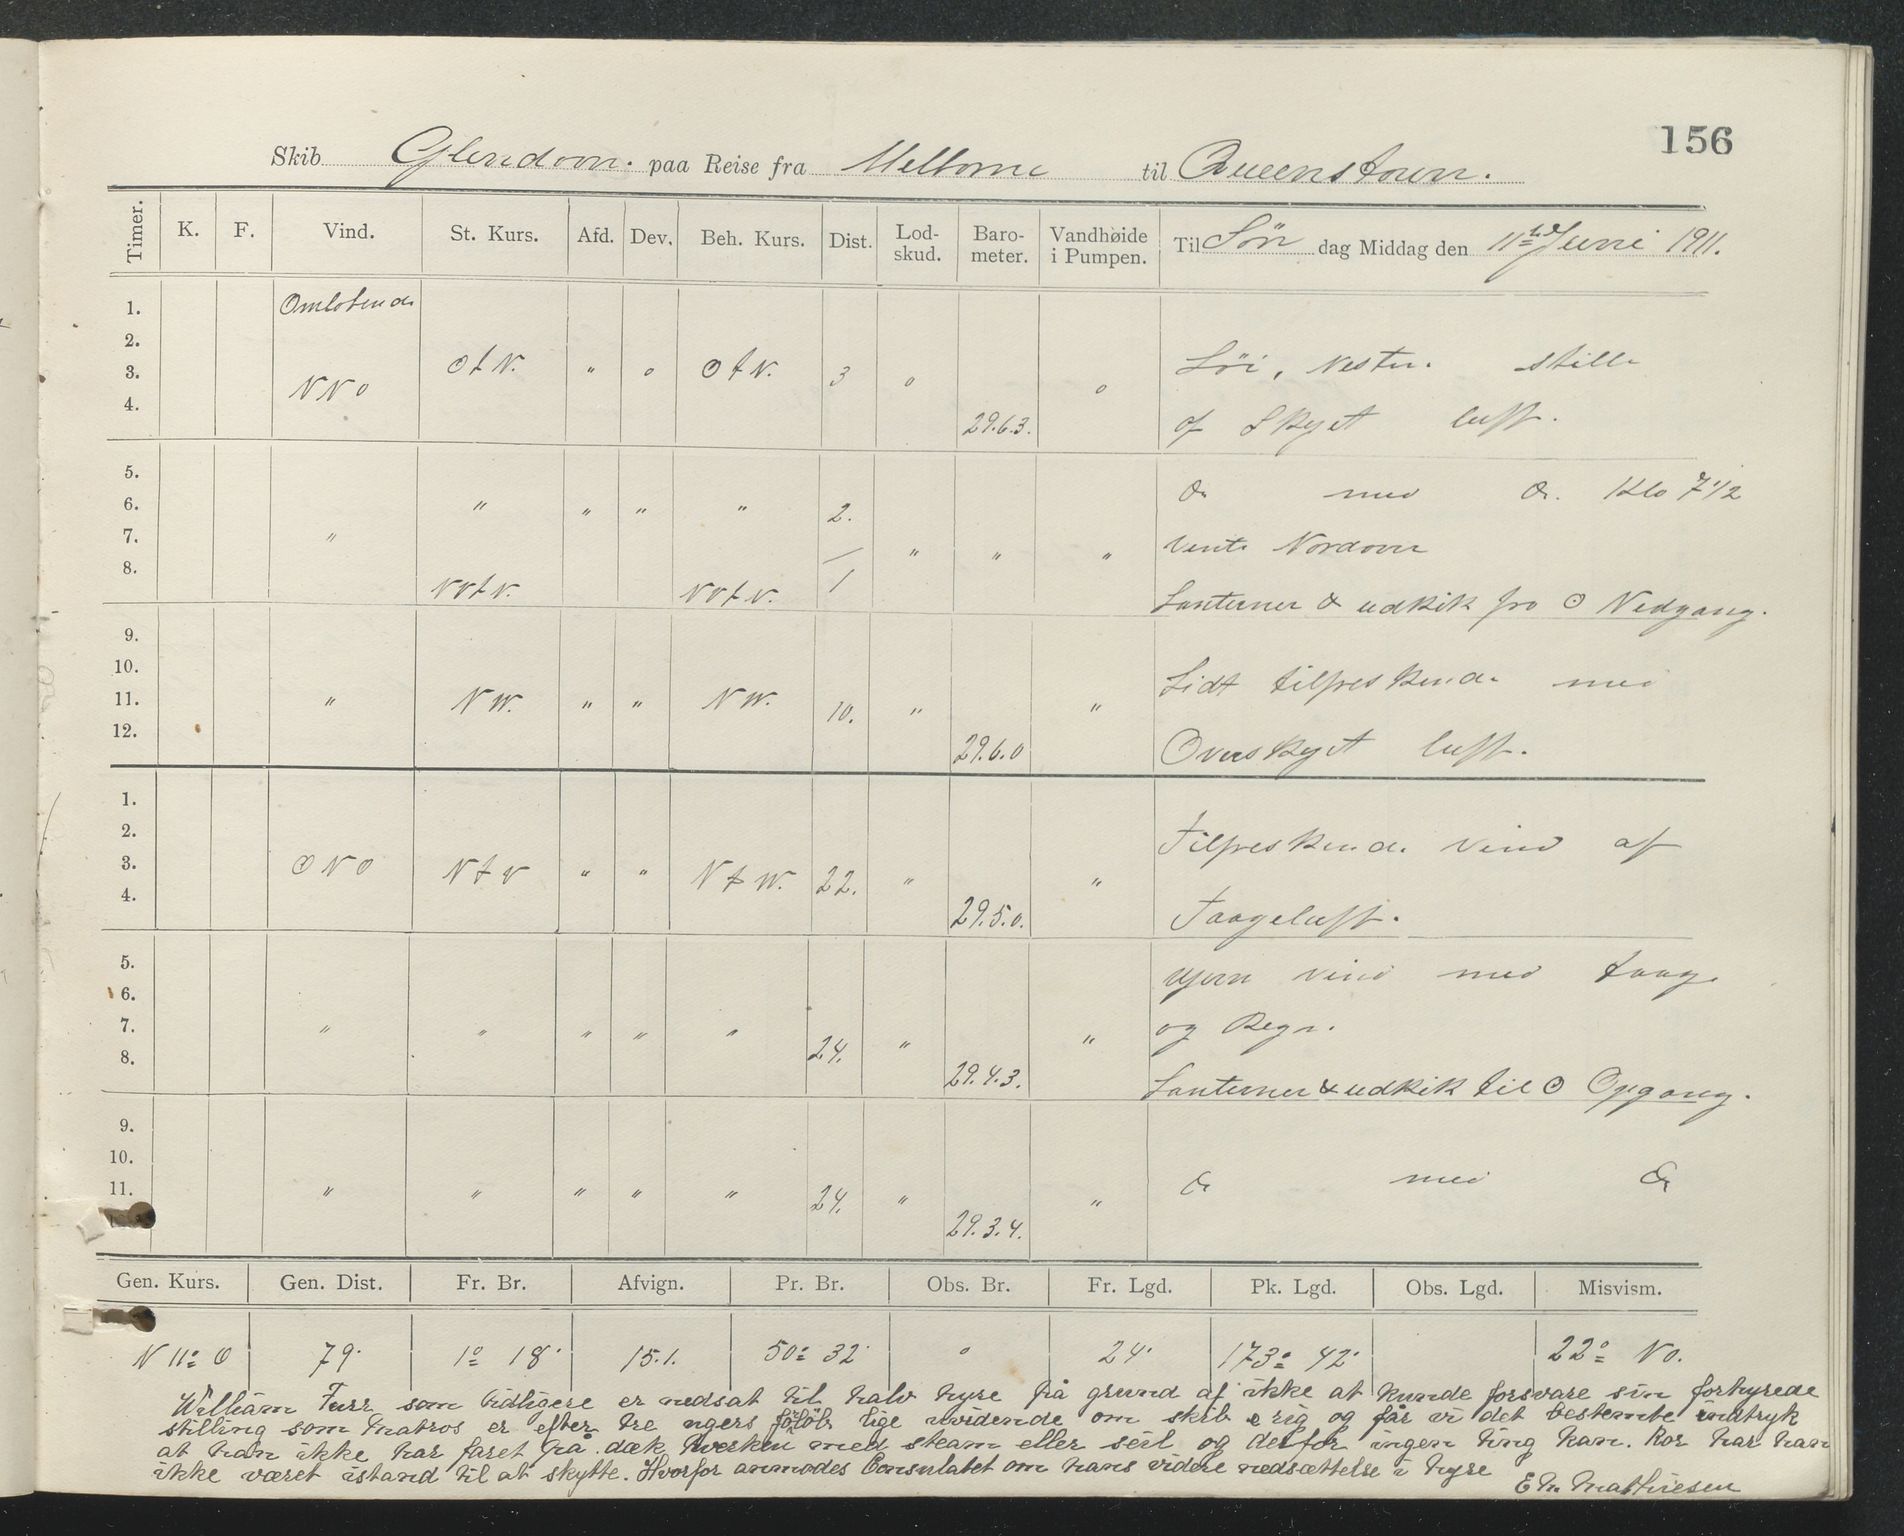 156
Skib Glendoon. paa Reise fra Melborne til Queenstown.
Timer. K. F. Vind. St. Kurs. Afd. Dev. Beh. Kurs. Dist. Lod-skud. Baro-meter. Vandhøide i Pumpen. Til Søn dag Middag den 11te Juni 1911.
1. Omløbende
2.
3. NNO O t N. " o O t N. 3 o o Löi, Vesten. stille
4. 29.6.3. af Skyet luft.
5. Do med Do. Klo 7 1/2
6. " " " " 2.
7. " " " " vente Nordover
8. NVtV. NVtV. 1 Lanterner & udkik fro ☉ Nedgang.
9.
10. Lidt tilfreskende med
11. " NW. " " NW. 10. " "
12. 29.6.0 Overskyet luft.
1.
2. Tilfreskende vind af
3. ONO N t V " " N t W. 22. " "
4. 29.5.0. Taageluft.
5. vind med taag
6.
7. " " " " " 24. " " og Regn.
8. 29.4.3. Lanterner & udkik til ☉ Opgang.
9.
10.
11. " " " " " 24. " " Do med Do
29.3.4.
Gen. Kurs. Gen. Dist. Fr. Br. Afvign. Pr. Br. Obs. Br. Fr. Lgd. Pk. Lgd. Obs. Lgd. Misvism.
N 11° O 79' 1° 18' 15.1. 50° 32' o 24' 173° 42' 22° No.
William Furr som tidligere er nedsat til halv hyre på grund af ikke at kunde forsvare sin forhyrede
stilling som matros er efter tre ugers forløb lige uvidende om skib rig og får vi det bestemte indtryk
at han ikke har faret på dæk hverken med steam eller seil og derfor ingen ting kan. Ror har han
ikke været istand til at skytte. Hvorfor anmodes Consulatet om hans videre nedsættelse i hyre
E M Mathiesen